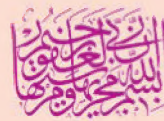 بسم الله مجريها ومرساها إن ربي لغفور رحيم